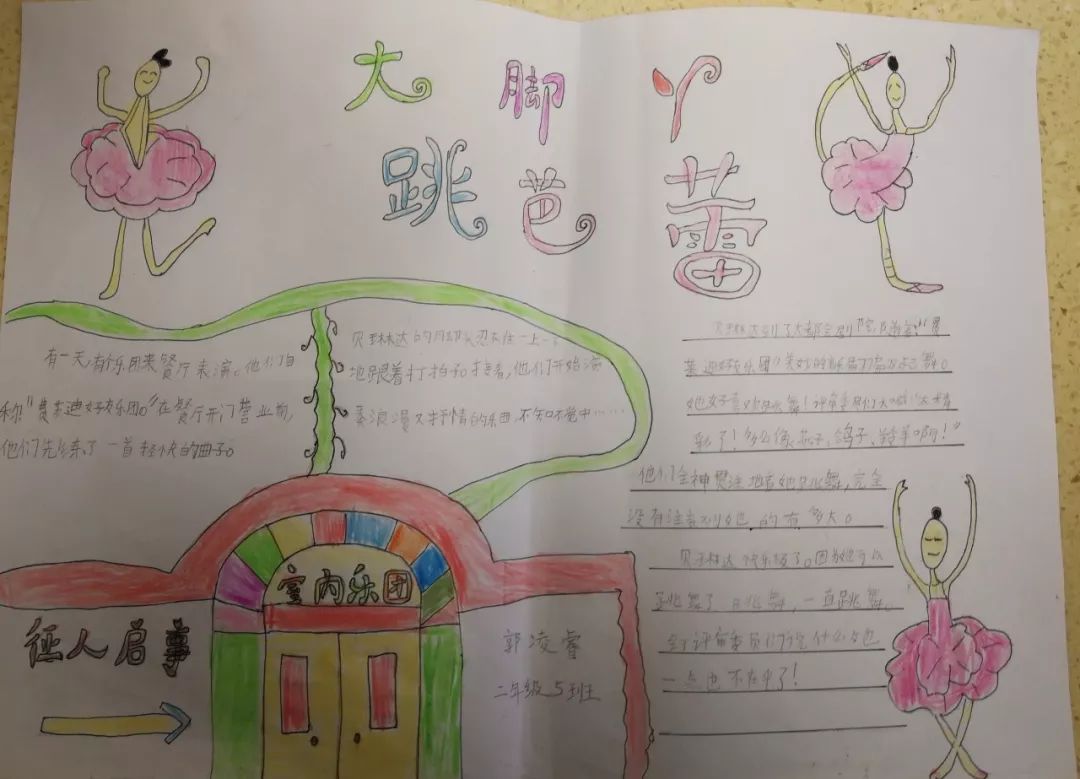 大脚丫
跳芭蕾
有一天,有个乐团来餐厅表演。他们自
称"费莱迪好友乐团。"在餐厅开门营业前,
他们先练了一首轻快的曲子。
贝琳达的月却忍不住一上一
地跟着打拍子。接着,他们开始演
奏浪漫又抒情的乐曲,不知不觉中……
贝琳达到了大都会剧院,随着"费
莱迪好友乐团"美妙的乐声
她好喜欢跳舞!评审委员们大喊:"太精
彩了!多么像燕子、鸽子、羚羊啊!"
他们全神贯注地看她跳舞,完全
没有注意到她的有多大。
贝琳达快乐极了。因为她可以
跳舞了,一直跳舞。
评审委员们说什么她
一点也不在乎了!
室内乐团
征人启事
郭凌睿
二年级5班